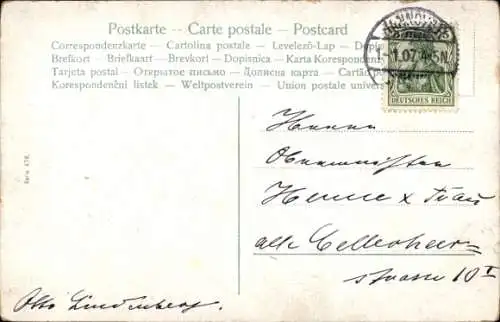 Postkarte -- Carte postale - Postcard
Correspondenzkarte - Cartolina postale - Levelező-Lap - Dopis
Brefkort - Briefkaart - Brevkort - Dopisnica - Karta Korespondenc
Tarjeta postal - Открытое письмо - Дописна карта - Cartão p
Korespondenční lístek - Weltpostverein - Union postale univers
1.07.4-5N.
DEUTSCHES REICH
Herrn
Henne x Frau
alte Cellerheer-
strasse 10 I
Otto Lindenberg.
Serie 476.